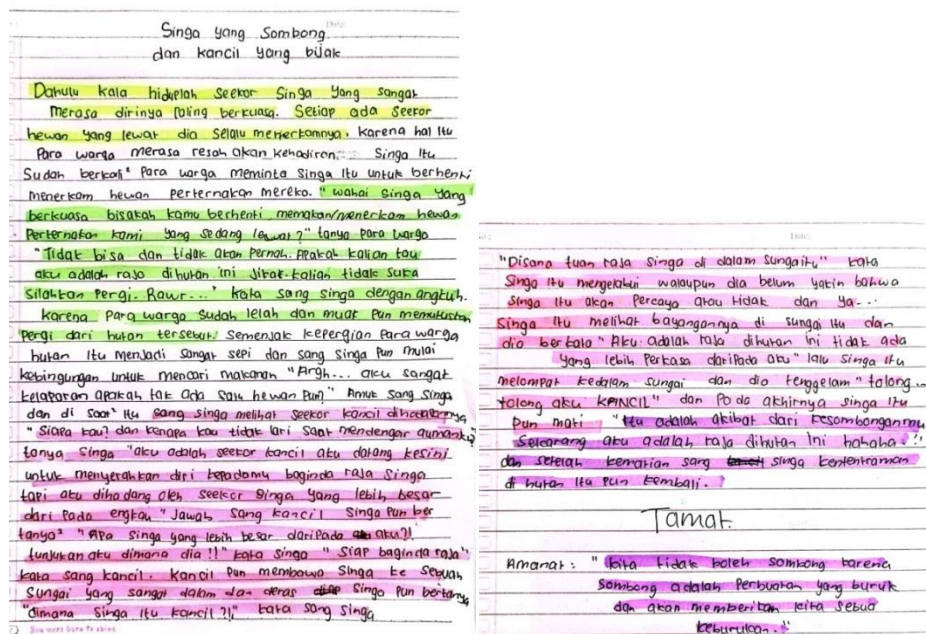 Date:
Singa yang Sombong
dan kancil yang bijak
Dahulu kala hiduplah seekor Singa yang sangat
merasa dirinya paling berkuasa. Setiap ada seekor
hewan yang lewat dia selalu menerkamnya. karena hal itu
Para warga merasa resah akan kehadiran Singa itu
Sudah berkali² Para warga meminta Singa itu untuk berhenti
menerkam hewan perternakan mereka. "wahai Singa yang
berkuasa bisakah kamu berhenti memakan/menerkam hewan
Perternakan kami yang sedang lewat?" tanya para warga
"Tidak bisa dan tidak akan pernah. Apakah kalian tau
aku adalah raja dihutan ini jika kalian tidak suka
silahkan pergi. Rawr..." kata sang singa dengan angkuh.
karena para warga sudah lelah dan muat pun memutuskan
Pergi dari hutan tersebut. Semenjak kepergian Para warga
hutan itu menjadi sangat sepi dan sang Singa pun mulai
kebingungan untuk mencari makanan "Argh... aku sangat
kelaparan apakah tak ada satu hewan pun?" Amuk sang singa
dan di saat² itu sang singa melihat seekor kancil dihadapannya
"Siapa kau? dan kenapa kau tidak lari saat mendengar aumanku"
tanya Singa "aku adalah seekor kancil aku datang kesini
untuk menyerahkan diri kepadamu baginda raja Singa
tapi aku dihadang oleh seekor Singa yang lebih besar
dari pada engkau" Jawab sang kancil Singa pun ber
tanya² "Apa singa yang lebih besar daripada aku?!
tunjukan aku dimana dia!!" kata singa "Siap baginda raja"
kata sang kancil. kancil Pun membawa Singa ke sebuah
Sungai yang sangat dalam dan deras Singa Pun bertanya
"dimana Singa itu kancil?!!" kata sang singa
You were born to shine
Date:
"Disana tuan raja Singa di dalam Sungaitu" kata
Singa itu mengelabui walaupun dia belum yakin bahwa
Singa itu akan Percaya atau tidak dan ya...
Singa itu melihat bayangannya di sungai itu dan
dia berkata "Aku adalah raja dihutan ini tidak ada
yang lebih perkasa daripada aku" lalu singa itu
melompat kedalam sungai dan dia tenggelam "tolong...
tolong aku KANCIL" dan Pada akhirnya singa itu
Pun mati "itu adalah akibat dari kesombonganmu
Sekarang aku adalah raja dihutan ini hahaha..!"
dan setelah kematian sang singa kententraman
di hutan itu pun kembali.
Tamat.
Amanat: "kita tidak boleh sombong karena
Sombong adalah Perbuatan yang buruk
dan akan memberikan kita sebua
keburukan."